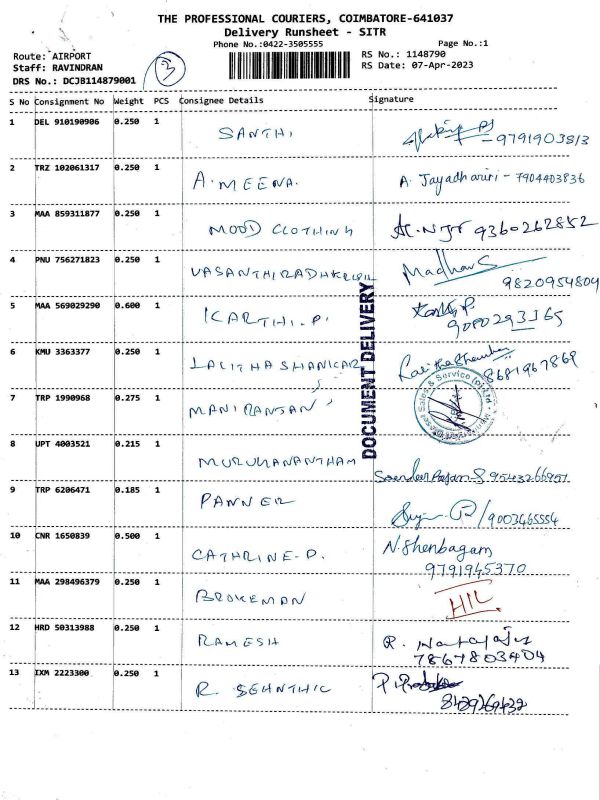 THE PROFESSIONAL COURIERS, COIMBATORE-641037
Delivery Runsheet - SITR
Phone No.:0422-3505555 Page No.:1
Route: AIRPORT RS No.: 1148790
Staff: RAVINDRAN 3 RS Date: 07-Apr-2023
DRS No.: DCJB114879001
S No Consignment No Weight PCS Consignee Details Signature
1 DEL 910190906 0.250 1 SANTHI - 9791903813
2 TRZ 102061317 0.250 1 A. MEENA. A. Jayadharini - 7904403836
3 MAA 859311877 0.250 1 MOOD CLOTHING 9360262852
4 PNU 756271823 0.250 1 Madhav S
9820954804
5 MAA 569029290 0.600 1 KARTHI. P.
6 KMU 3363377 0.250 1 LALITHA SHANKAR Lalitha Shankar
8681967869
7 TRP 1990968 0.275 1 MANIRANJAN
DOCUMENT DELIVERY
Sales & Service
8 UPT 4003521 0.215 1 MURUGANANTHAM 9543266957
9 TRP 6206471 0.185 1 PANNER /9003465554
10 CNR 1650839 0.500 1 CATHRINE - P. N. Shenbagam
9791945370
11 MAA 298496379 0.250 1 BROKEMAN HIL
12 HRD 50313988 0.250 1 RAMESH
7867803404
13 IXM 2223300 0.250 1 R. SENTHIL